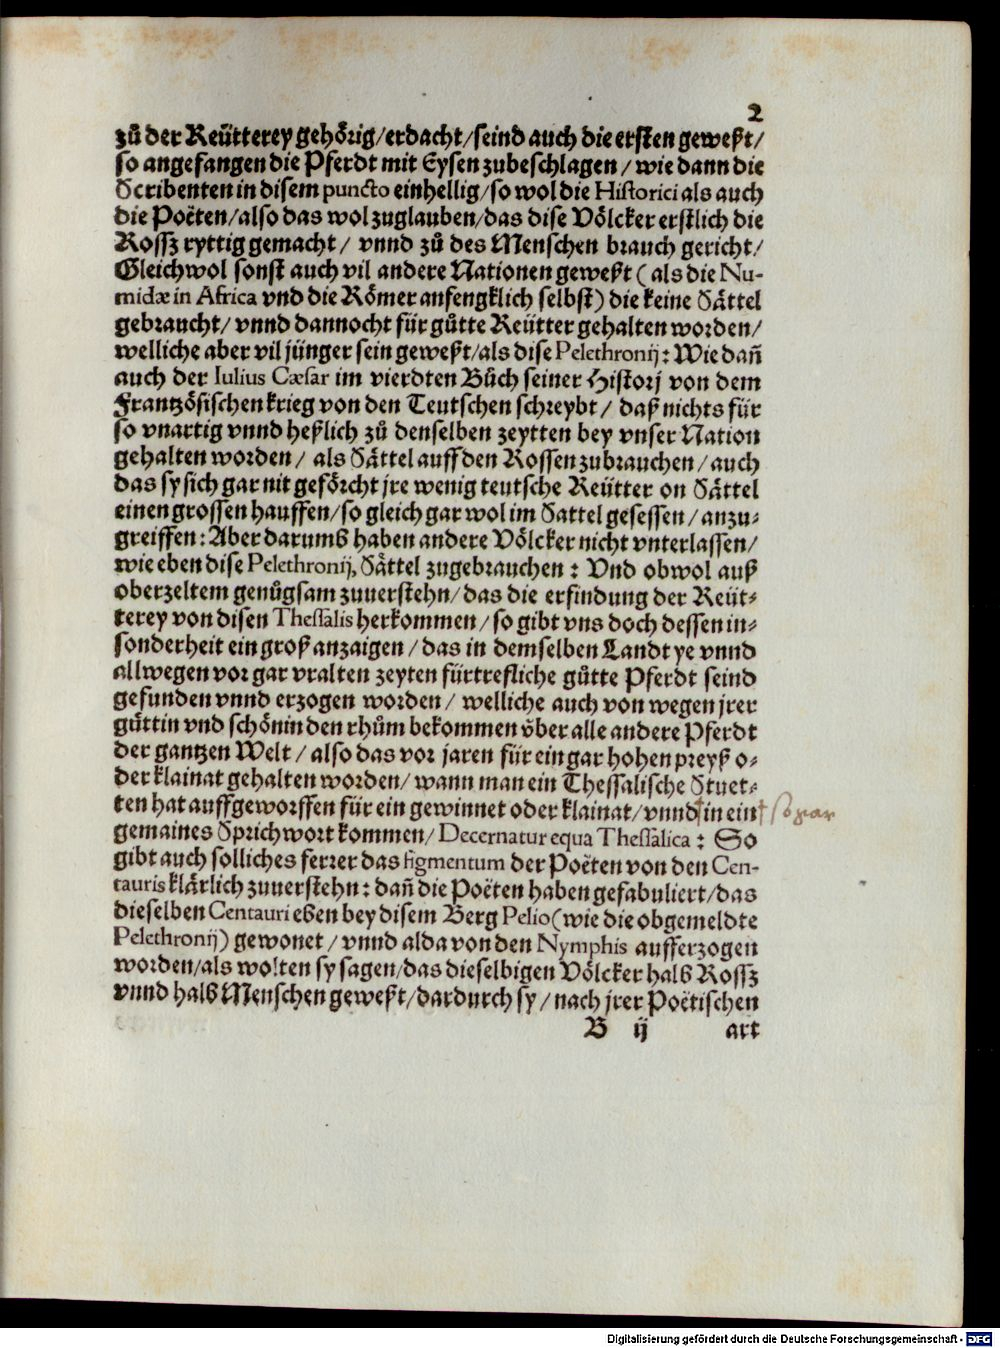 2
zů der Reütterey gehörig/erdacht/seind auch die ersten geweßt/
so angefangen die Pferdt mit Eysen zubeschlagen / wie dann die
Scribenten in disem puncto einhellig/so wol die Historici als auch
die Poëten/also das wol zuglauben/das dise Völcker erstlich die
Rossz ryttig gemacht / vnnd zů des Menschen brauch gericht/
Gleichwol sonst auch vil andere Nationen geweßt ( als die Nu-
midæ in Africa vnd die Römer anfengklich selbst) die keine Sättel
gebraucht/ vnnd dannocht für gůtte Reütter gehalten worden/
welliche aber vil jünger sein geweßt/als dise Pelethronij: Wie dañ
auch der Iulius Cæsar im vierdten Bůch seiner Historj von dem
Frantzösischen krieg von den Teutschen schreybt / daß nichts für
so vnartig vnnd heßlich zů denselben zeytten bey vnser Nation
gehalten worden / als Sättel auff den Rossen zubrauchen / auch
das sy sich gar nit geförcht jre wenig teutsche Reütter on Sättel
einen grossen hauffen/so gleich gar wol im Sattel gesessen / anzu-
greiffen: Aber darumb haben andere Völcker nicht vnterlassen/
wie eben dise Pelethronij, Sättel zugebrauchen : Vnd obwol auß
oberzeltem genůgsam zuuerstehn/das die erfindung der Reüt-
terey von disen Thessalis herkommen / so gibt vns doch dessen in-
sonderheit ein groß anzaigen / das in demselben Landt ye vnnd
allwegen vor gar vralten zeyten fürtrefliche gůtte Pferdt seind
gefunden vnnd erzogen worden / welliche auch von wegen jrer
gůttin vnd schönin den rhům bekommen vber alle andere Pferdt
der gantzen Welt / also das vor jaren für ein gar hohen preyß o-
der klainat gehalten worden/ wann man ein Thessalische Stuet-
ten hat auffgeworffen für ein gewinnet oder klainat/ vnnd in ein † so gar
gemaines Sprichwort kommen/ Decernatur equa Thessalica : So
gibt auch solliches ferrer das figmentum der Poëten von den Cen-
tauris klärlich zuuerstehn : dañ die Poëten haben gefabuliert/das
dieselben Centauri eben bey disem Berg Pelio (wie die obgemeldte
Pelethronij) gewonet / vnnd alda von den Nymphis aufferzogen
worden/als wolten sy sagen/das dieselbigen Völcker halb Rossz
vnnd halb Menschen geweßt/dardurch sy / nach jrer Poëtischen
B ij art
Digitalisierung gefördert durch die Deutsche Forschungsgemeinschaft - DFG